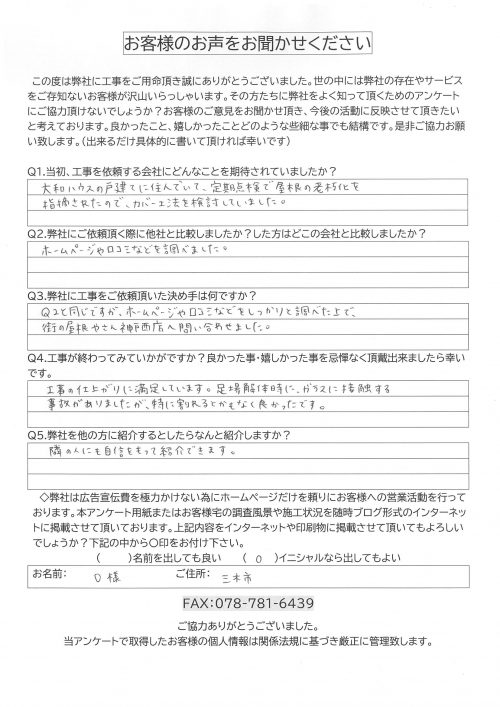 お客様のお声をお聞かせください
この度は弊社に工事をご用命頂き誠にありがとうございました。世の中には弊社の存在やサービス
をご存知ないお客様が沢山いらっしゃいます。その方たちに弊社をよく知って頂くためのアンケート
にご協力頂けないでしょうか？お客様のご意見をお聞かせ頂き、今後の活動に反映させて頂きたい
と考えております。良かったこと、嬉しかったことどのような些細な事でも結構です。是非ご協力お願
い致します。（出来るだけ具体的に書いて頂ければ幸いです）
Q1.当初、工事を依頼する会社にどんなことを期待されていましたか？
大和ハウスの戸建てに住んでいて、定期点検で屋根の老朽化を
指摘されたので、カバー工法を検討していました。
Q2.弊社にご依頼頂く際に他社と比較しましたか？した方はどこの会社と比較しましたか？
ホームページや口コミなどを調べました。
Q3.弊社に工事をご依頼頂いた決め手は何ですか？
Q2と同じですが、ホームページや口コミなどをしっかりと調べた上で、
街の屋根やさん神戸西店へ問い合わせました。
Q4.工事が終わってみていかがですか？良かった事・嬉しかった事を忌憚なく頂戴出来ましたら幸い
です。
工事の仕上がりに満足しています。足場解体時に、ガラスに接触する
事故がありましたが、特に割れるとかもなく良かったです。
Q5.弊社を他の方に紹介するとしたらなんと紹介しますか？
隣の人にも自信をもって紹介できます。
◇弊社は広告宣伝費を極力かけない為にホームページだけを頼りにお客様への営業活動を行って
おります。本アンケート用紙またはお客様宅の調査風景や施工状況を随時ブログ形式のインターネッ
トに掲載させて頂いております。上記内容をインターネットや印刷物に掲載させて頂いてもよろしい
でしょうか？下記の中から〇印をお付け下さい。
（　　）名前を出しても良い　（ O ）イニシャルなら出してもよい
お名前：　O 様　ご住所：　三木市
FAX：078-781-6439
ご協力ありがとうございました。
当アンケートで取得したお客様の個人情報は関係法規に基づき厳正に管理致します。